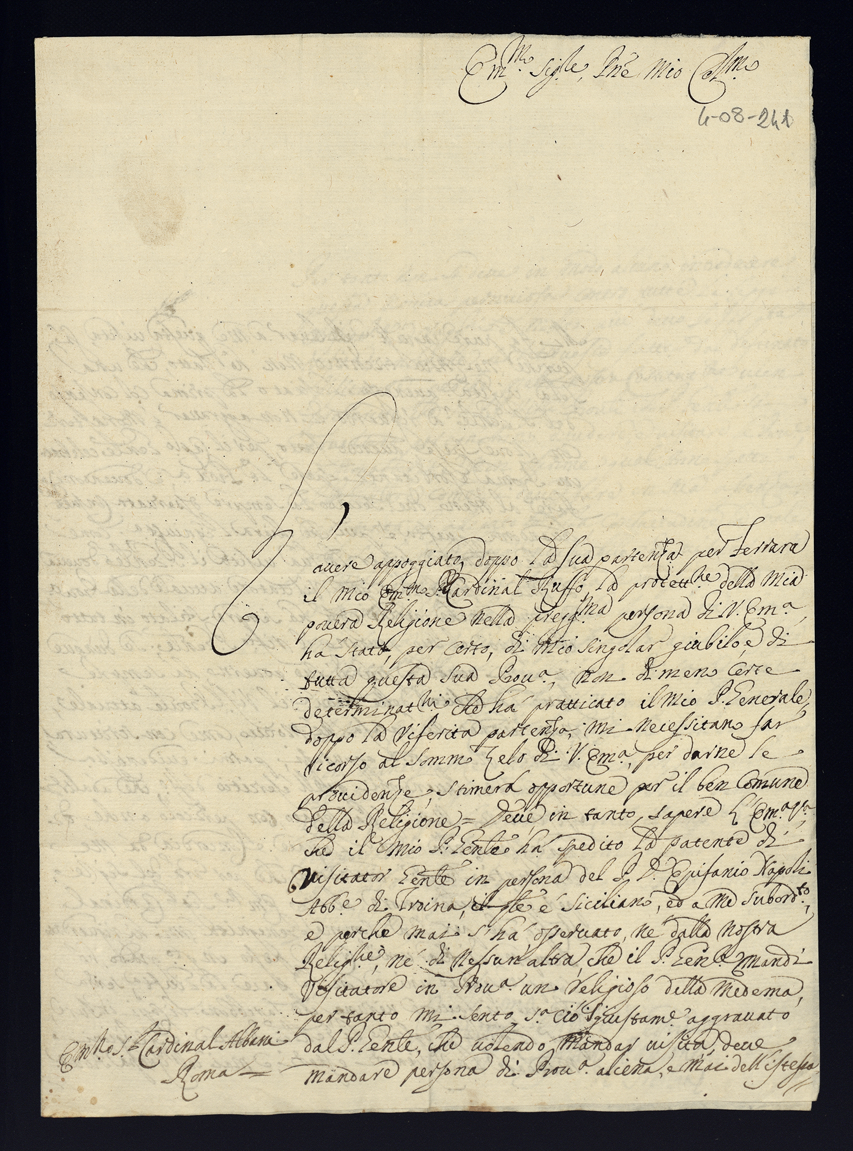 Em.mo Sig.re, Pne Mio Col.mo
4-08-241
L'
avere appoggiato, doppo la sua partenza per Ferrara
il mio Em.mo S. Cardinal Ruffo, la protett.ne della mia
povera Religione nella pregg.ma persona di V. Em.a,
ha stato, per certo, di mio singolar giubilo, e di
tutta questa sua Prou.a, non di meno certe
determinat.ni che ha pratticato il mio P. Generale,
doppo la riferita partenza, mi necessitano far
ricorso al sommo zelo di V. Em.a, per darne le
providenze, stimerà opportune per il ben comune
della Religione = Deve in tanto, sapere l'Em.a V.a
che il mio P. Gen.le ha spedito la patente di
Visitator Gen.le in persona del P. D. Epifanio Napoli
Abb.e di Troina, il q.le è Siciliano, ed a me subord.to,
e perche mai s'ha osservato, ne dalla nostra
Relig.ne, ne di nessun altra, che il P. Gen.le mandi
Visitatore in Prou.a un religioso della medema,
per tanto mi sento, s.a ciò, giustam.e aggravato
dal P. Gen.le, che volendo mandar visita, deve
mandare persona di Prou.a aliena, e mai dell'istessa
Em.mo S. Cardinal Albani
Roma =